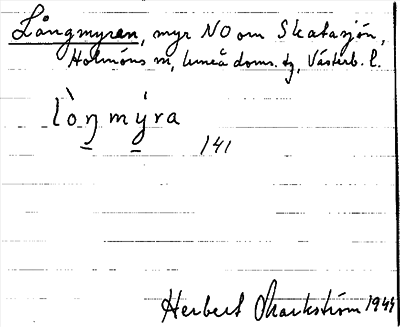 Långmyren, myr NO om Skatasjön,
Holmöns sn, Umeå doms. tg, Västerb. l.
lòŋmýra
141
Herbert Markström 1944